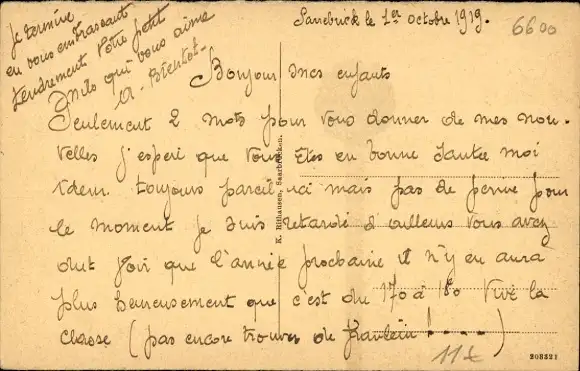 Sarrebrück le 1er octobre 1919.
6600
Bonjour mes enfants
Seulement 2 mots pour vous donner de mes nou-
velles j'espere que vous êtes en bonne santée moi
idem. toujours pareil ici mais pas de perme pour
le moment je suis retardé d'ailleurs vous avez
dut voir que l'année prochaine il n'y en aura
plus heureusement que c'est du 170 à 180 Vive la
classe (pas encore trouver de fraulein ! ----)
Je termine
en vous embrassant
tendrement Votre petit
Mils qui vous aime
A - Bientot -
K. Rithausen, Saarbrücken.
11 £
208321